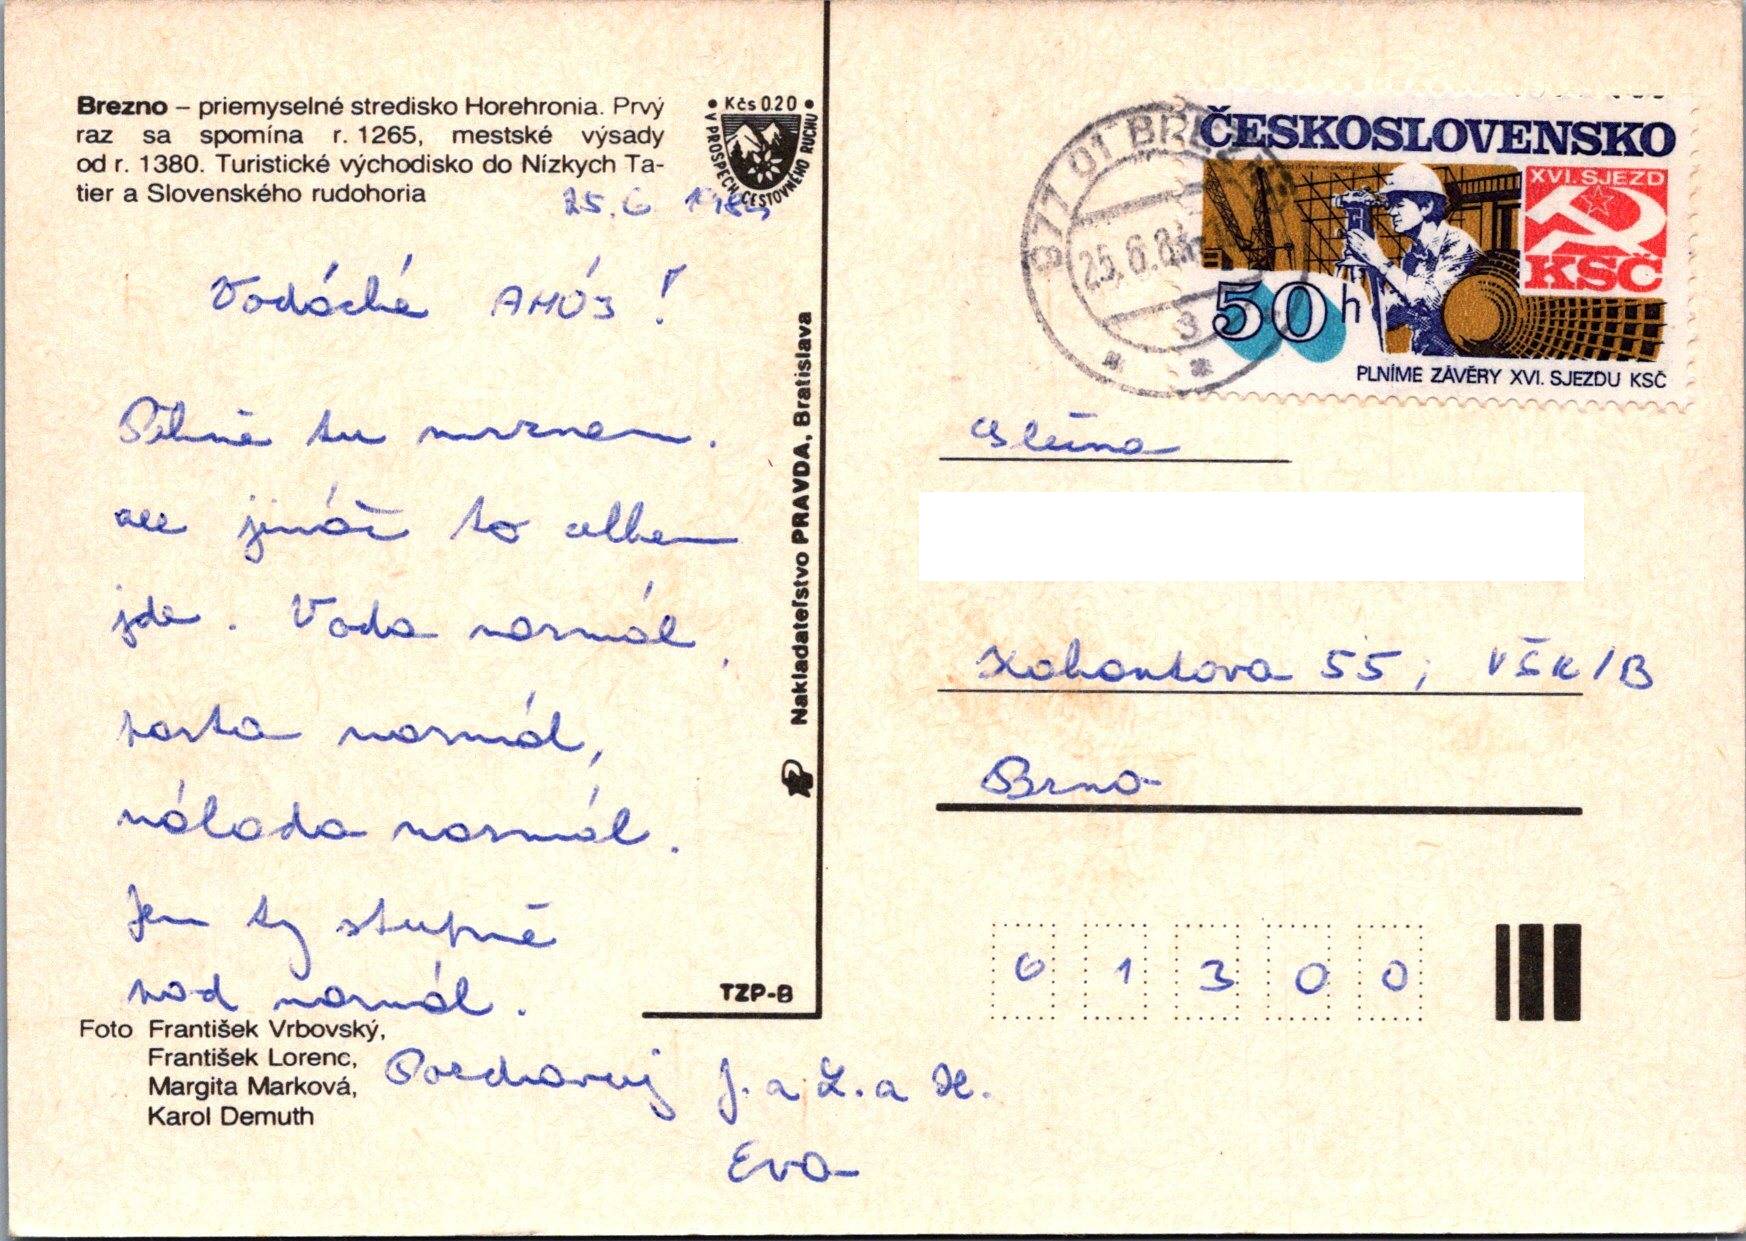 Brezno – priemyselné stredisko Horehronia. Prvý
raz sa spomína r. 1265, mestské výsady
od r. 1380. Turistické východisko do Nízkych Ta-
tier a Slovenského rudohoria
• Kčs 0.20 •
V PROSPECH CESTOVNÉHO RUCHU
25.6 198
Vodácké AHÓJ!
Pěkně tu mrznem.
ale jináč to celkem
jde. Voda normál,
parta normál,
nálada normál.
Jen ty stupně
pod normál.
Pozdravuj J. a Z. a H.
Eva
Foto František Vrbovský,
František Lorenc,
Margita Marková,
Karol Demuth
Nakladateľstvo PRAVDA, Bratislava
TZP-B
977 01 BREZNO
25.6.8
3
ČESKOSLOVENSKO
XVI. SJEZD
KSČ
50 h
PLNÍME ZÁVĚRY XVI. SJEZDU KSČ
Slečna
Kohoutova 55, VŠK/B
Brno
61300